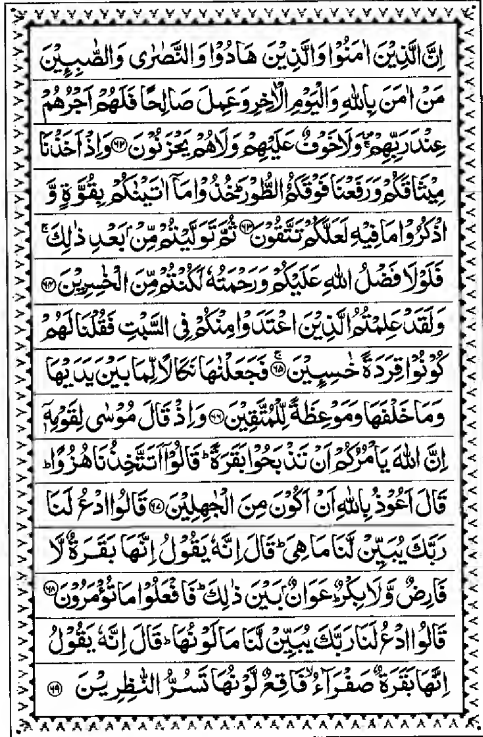 اِنَّ الَّذِيْنَ اٰمَنُوْا وَالَّذِيْنَ هَادُوْا وَالنَّصٰرٰى وَالصّٰبِـِٕيْنَ
مَنْ اٰمَنَ بِاللّٰهِ وَالْيَوْمِ الْاٰخِرِ وَعَمِلَ صَالِحًا فَلَهُمْ اَجْرُهُمْ
عِنْدَ رَبِّهِمْ ۚ وَلَا خَوْفٌ عَلَيْهِمْ وَلَا هُمْ يَحْزَنُوْنَ ﴿۶۲﴾ وَاِذْ اَخَذْنَا
مِيْثَاقَكُمْ وَرَفَعْنَا فَوْقَكُمُ الطُّوْرَ ؕ خُذُوْا مَآ اٰتَيْنٰكُمْ بِقُوَّةٍ وَّ
اذْكُرُوْا مَا فِيْهِ لَعَلَّكُمْ تَتَّقُوْنَ ﴿۶۳﴾ ثُمَّ تَوَلَّيْتُمْ مِّنْۢ بَعْدِ ذٰلِكَ ۚ
فَلَوْلَا فَضْلُ اللّٰهِ عَلَيْكُمْ وَرَحْمَتُهٗ لَكُنْتُمْ مِّنَ الْخٰسِرِيْنَ ﴿۶۴﴾
وَلَقَدْ عَلِمْتُمُ الَّذِيْنَ اعْتَدَوْا مِنْكُمْ فِى السَّبْتِ فَقُلْنَا لَهُمْ
كُوْنُوْا قِرَدَةً خٰسِـِٕيْنَ ﴿۶۵﴾ ۚ فَجَعَلْنٰهَا نَكَالًا لِّمَا بَيْنَ يَدَيْهَا
وَمَا خَلْفَهَا وَمَوْعِظَةً لِّلْمُتَّقِيْنَ ﴿۶۶﴾ وَاِذْ قَالَ مُوْسٰى لِقَوْمِهٖٓ
اِنَّ اللّٰهَ يَاْمُرُكُمْ اَنْ تَذْبَحُوْا بَقَرَةً ؕ قَالُوْٓا اَتَتَّخِذُنَا هُزُوًا ؕ
قَالَ اَعُوْذُ بِاللّٰهِ اَنْ اَكُوْنَ مِنَ الْجٰهِلِيْنَ ﴿۶۷﴾ قَالُوا ادْعُ لَنَا
رَبَّكَ يُبَيِّنْ لَّنَا مَا هِىَ ؕ قَالَ اِنَّهٗ يَقُوْلُ اِنَّهَا بَقَرَةٌ لَّا
فَارِضٌ وَّلَا بِكْرٌ ؕ عَوَانٌۢ بَيْنَ ذٰلِكَ ؕ فَافْعَلُوْا مَا تُؤْمَرُوْنَ ﴿۶۸﴾
قَالُوا ادْعُ لَنَا رَبَّكَ يُبَيِّنْ لَّنَا مَا لَوْنُهَا ؕ قَالَ اِنَّهٗ يَقُوْلُ
اِنَّهَا بَقَرَةٌ صَفْرَآءُ ۙ فَاقِعٌ لَّوْنُهَا تَسُرُّ النّٰظِرِيْنَ ﴿۶۹﴾